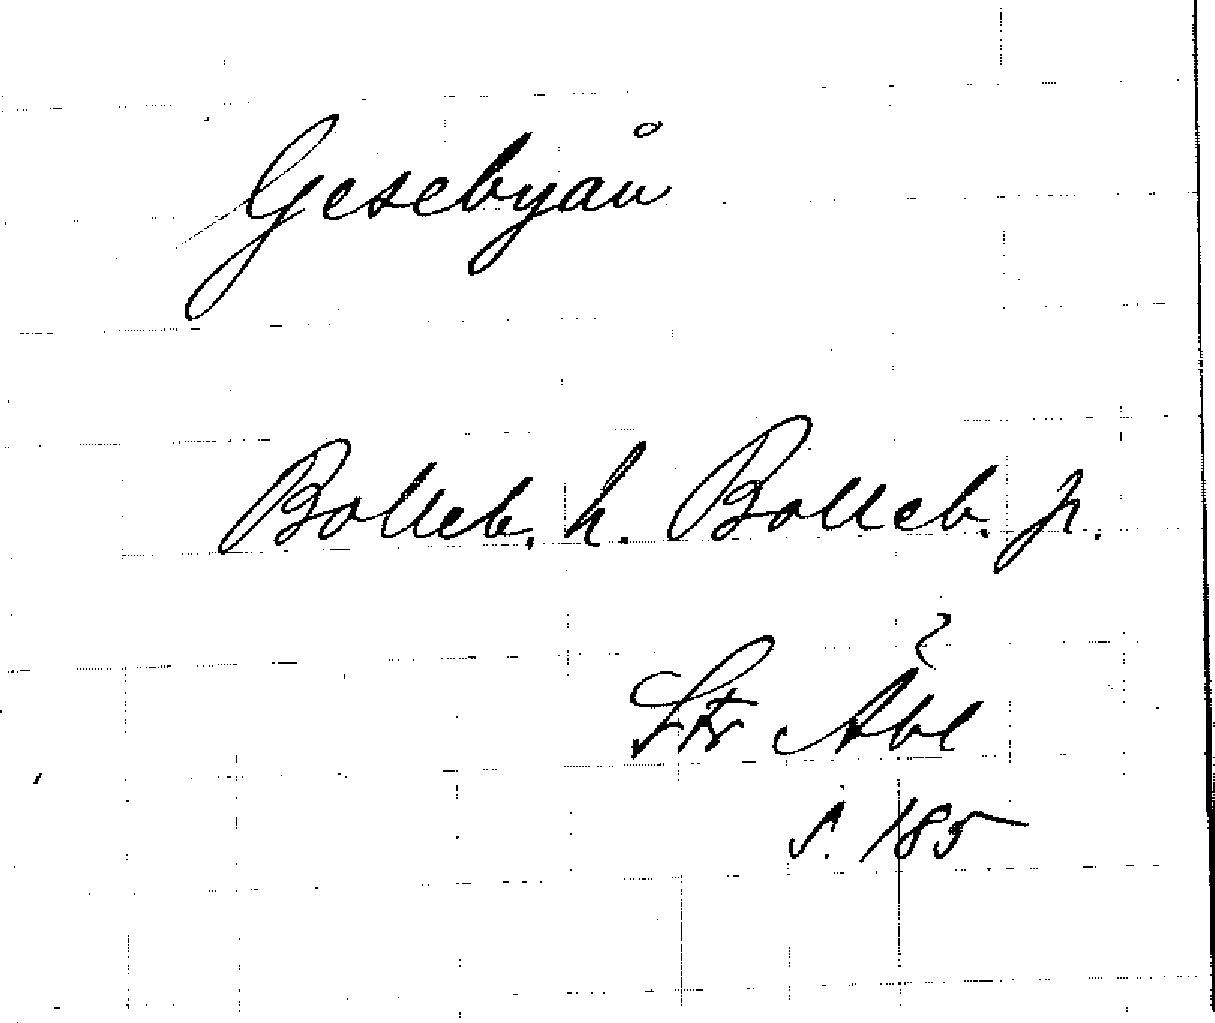 Gesebyån
Bolleb. h. Bolleb. p.
Str Åbl
s. 185